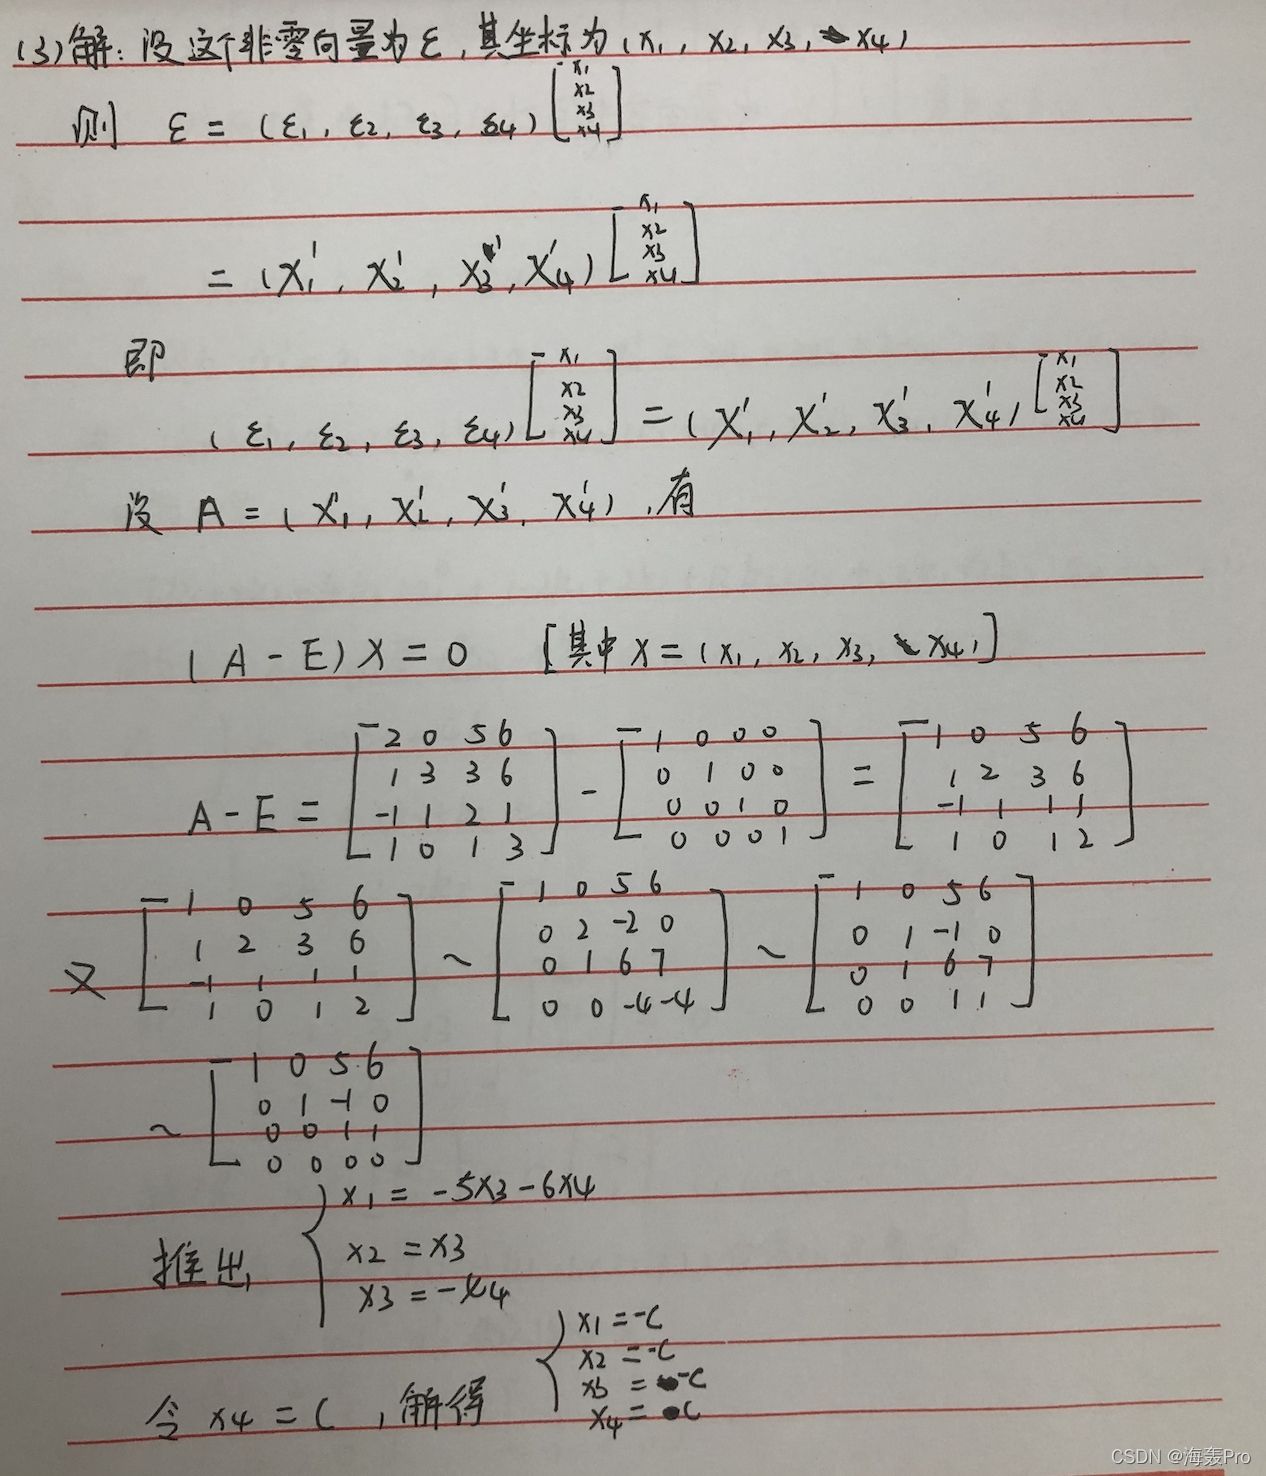 (3)解：设这个非零向量为ε，其坐标为(x1, x2, x3, x4)
则 ε = (ε1, ε2, ε3, ε4) [x1 x2 x3 x4]
= (X1', X2', X3', X4') [x1 x2 x3 x4]
即
(ε1, ε2, ε3, ε4) [x1 x2 x3 x4] = (X1', X2', X3', X4') [x1 x2 x3 x4]
设 A = (X1', X2', X3', X4')，有
(A - E) X = 0 [其中 X = (x1, x2, x3, x4)]
A - E = [2 0 5 6; 1 3 3 6; -1 1 2 1; 1 0 1 3] - [1 0 0 0; 0 1 0 0; 0 0 1 0; 0 0 0 1] = [1 0 5 6; 1 2 3 6; -1 1 1 1; 1 0 1 2]
又 [1 0 5 6; 1 2 3 6; -1 1 1 1; 1 0 1 2] ~ [1 0 5 6; 0 2 -2 0; 0 1 6 7; 0 0 -4 -4] ~ [1 0 5 6; 0 1 -1 0; 0 1 6 7; 0 0 1 1]
~ [1 0 5 6; 0 1 -1 0; 0 0 1 1; 0 0 0 0]
推出 { x1 = -5x3 - 6x4
x2 = x3
x3 = -x4
令 x4 = C，解得 { x1 = -C
x2 = -C
x3 = -C
x4 = C
CSDN @海轰Pro